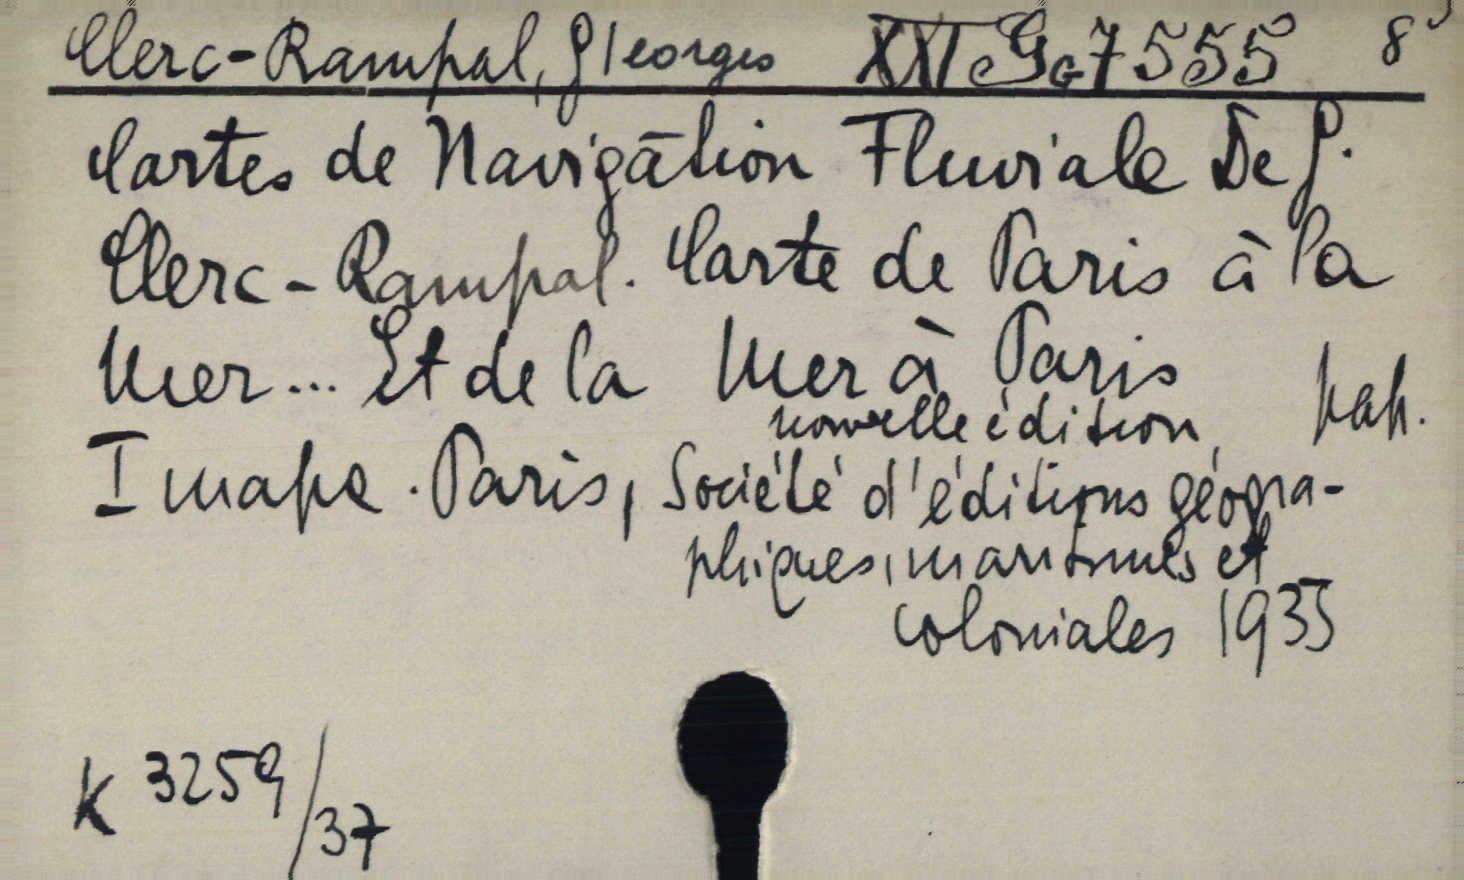 Clerc-Rampal, G/eorges XXI Gg 7555 8°
Cartes de Navigation Fluviale De G.
Clerc-Rampal. Carte de Paris à la
Mer... Et de la Mer à Paris
nouvelle édition, pap.
I mapa. Paris, Société d'éditions géogra-
phiques, maritimes et
coloniales 1935
K 3259/37